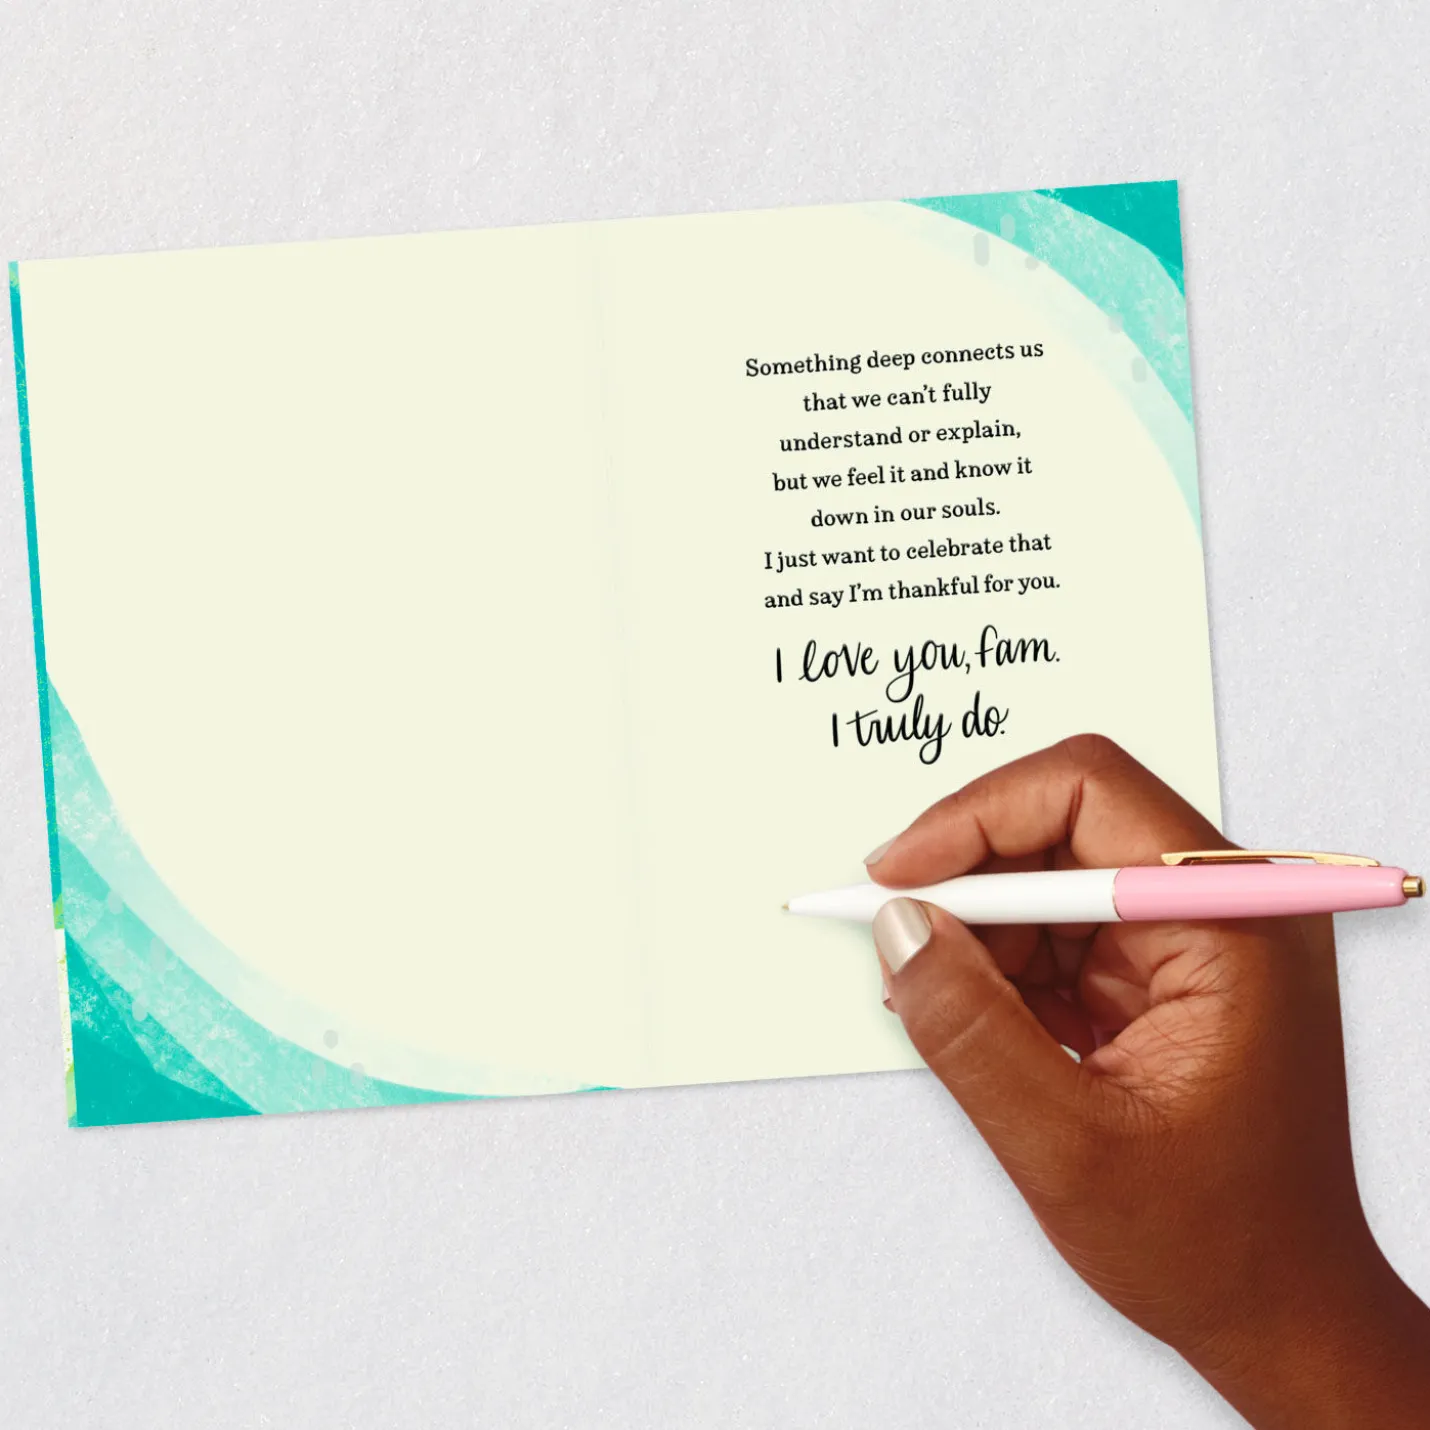 Something deep connects us
that we can't fully
understand or explain,
but we feel it and know it
down in our souls.
I just want to celebrate that
and say I'm thankful for you.
I love you, fam.
I truly do.